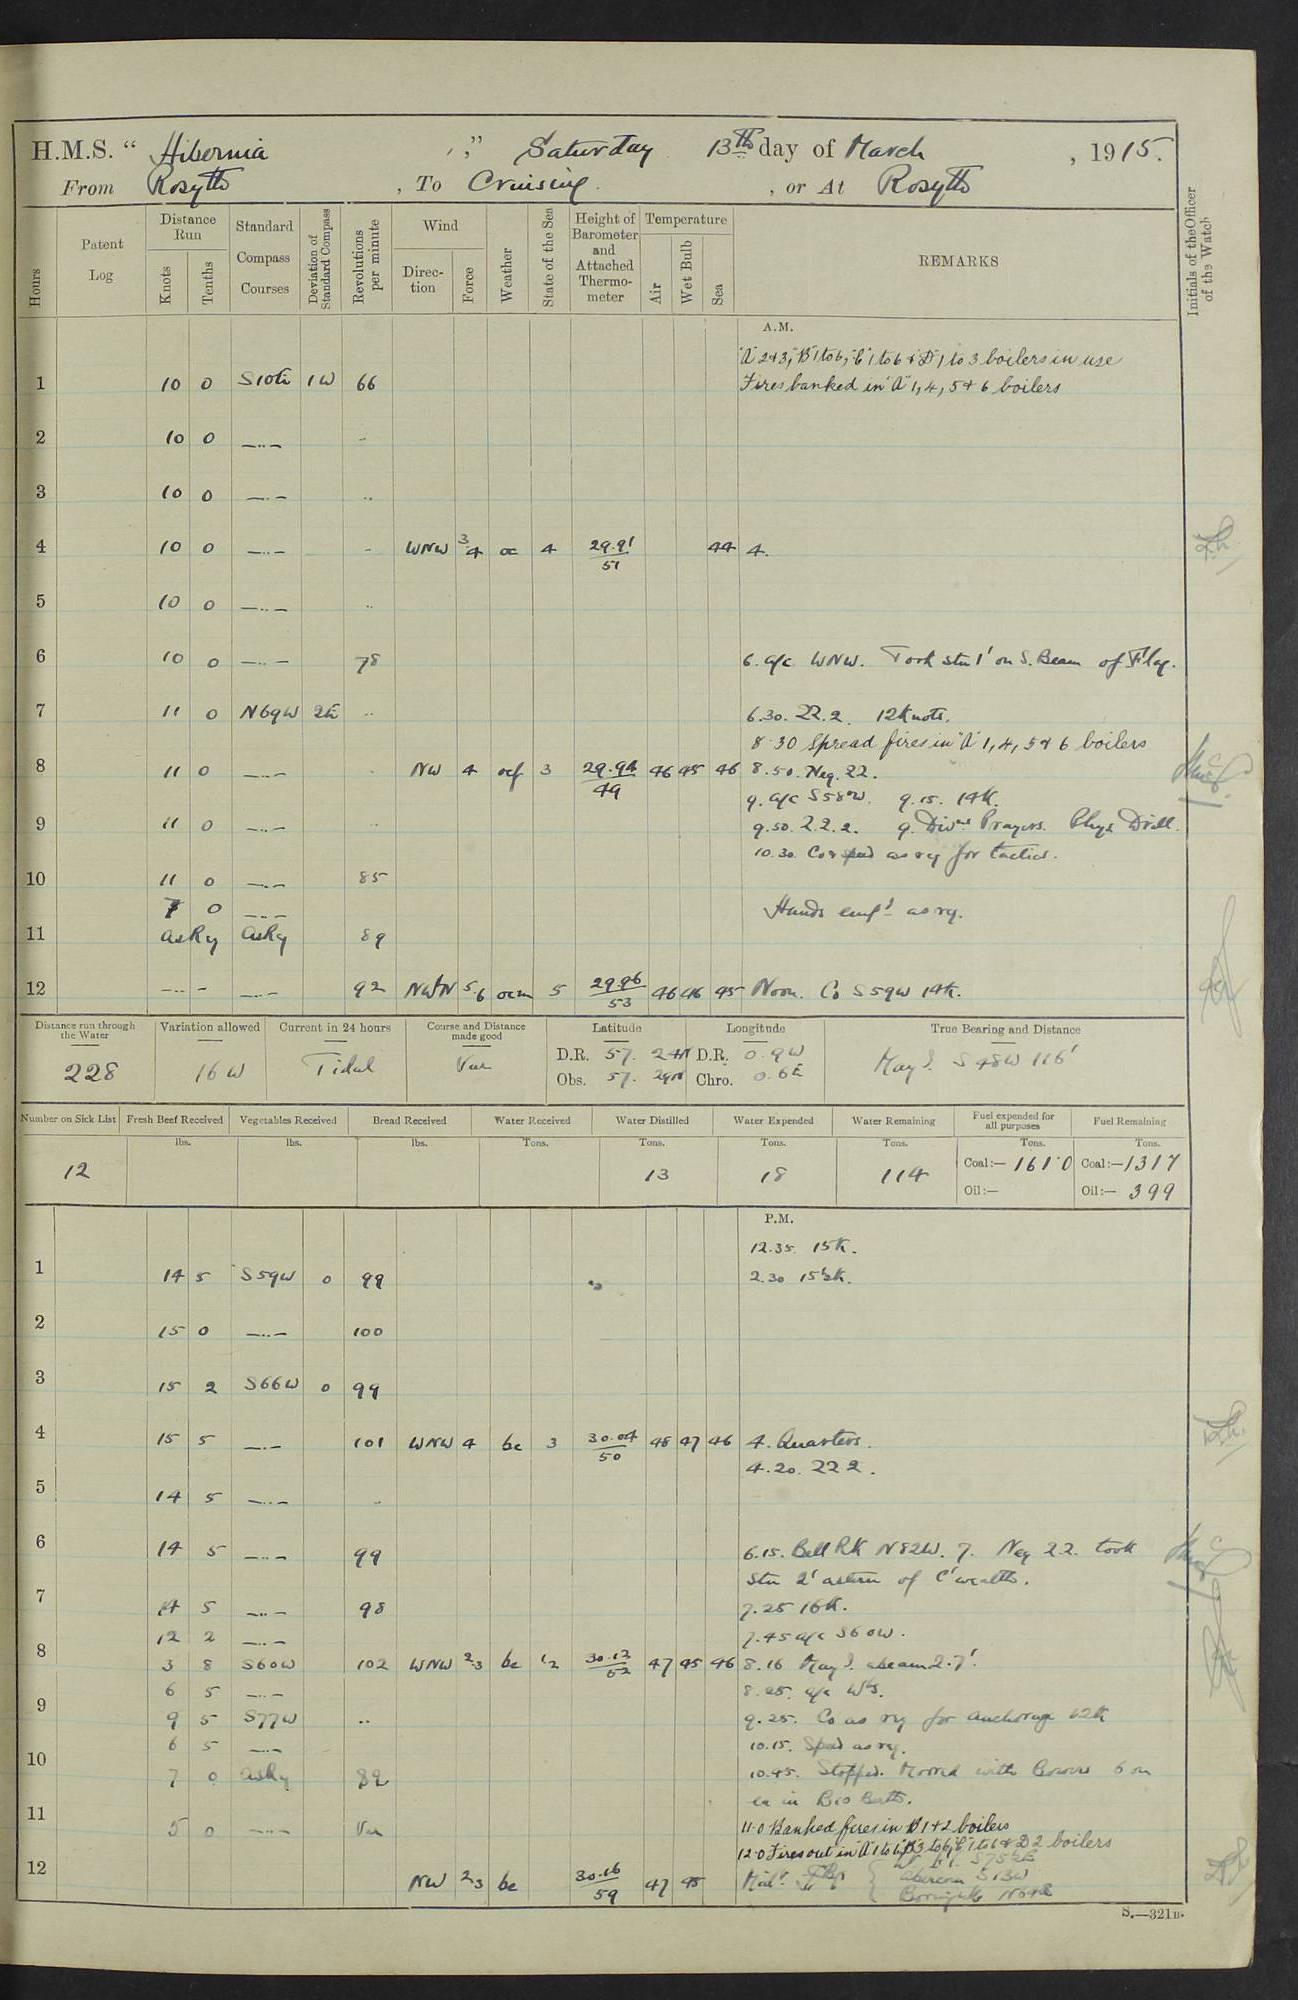 H.M.S. “ Hibernia ,” Saturday 13th day of March , 1915.
From Rosyth , To Cruising , or At Rosyth
Hours
Patent Log
Distance Run
Knots
Tenths
Standard Compass Courses
Deviation of Standard Compass
Revolutions per minute
Wind
Direction
Force
Weather
State of the Sea
Height of Barometer and Attached Thermometer
Temperature
Air
Wet Bulb
Sea
REMARKS
Initials of the Officer of the Watch
A.M.
"A" 2+3, "B" 1 to 6, "C" 1 to 6 & "D" 1 to 3 boilers in use
1 10 0 S10E 1W 66 Fires banked in "A" 1, 4, 5 & 6 boilers
2 10 0 —..— ..
3 10 0 —..— ..
4 10 0 —..— .. WNW 3.4 oc 4 29.91/51 44 4.
5 10 0 —..— ..
6 10 0 —..— 78 6. a/c WNW. Took stn 1' on S. Beam of Flag.
7 11 0 N69W 2E .. 6.30. ZZ.2. 12 Knots.
8.30 Spread fires in "A" 1, 4, 5 & 6 boilers
8 11 0 —..— .. NW 4 ocf 3 29.94/49 46 45 46 8.50. Neg. ZZ.
9. a/c S58W. 9.15. 14K.
9 11 0 —..— .. 9.50. Z.Z.2. 9. Divns Prayers. Phys Drill.
10.30. Co & speed as rq for tactics.
10 11 0 —..— 85
7 0 —..— Hands empd as rq.
11 asRq asRq 89
12 —..— —..— 92 NWbN 5.6 ocm 5 29.96/53 46 46 45 Noon. Co S59W 14K.
Distance run through the Water
Variation allowed
Current in 24 hours
Course and Distance made good
Latitude
Longitude
True Bearing and Distance
228 16 W Tidal Var D.R. 57. 24N D.R. 0.9W May I. S 48W 116'
Obs. 57. 29N Chro. 0.6E
Number on Sick List
Fresh Beef Received
Vegetables Received
Bread Received
Water Received
Water Distilled
Water Expended
Water Remaining
Fuel expended for all purposes
Fuel Remaining
lbs. lbs. lbs. Tons. Tons. Tons. Tons. Tons. Tons.
12 13 18 114 Coal:— 161.0 Coal:— 1317
Oil:— Oil:— 399
P.M.
12.35. 15K.
1 14 5 S59W 0 99 2.30 15½K.
2 15 0 —..— 100
3 15 2 S66W 0 99
4 15 5 —..— 101 WNW 4 bc 3 30.04/50 48 47 46 4. Quarters.
4.20. ZZ2.
5 14 5 —..— ..
6 14 5 —..— 99 6.15. Bell Rk N82W. 7. Neg ZZ. took
Stn 2' astern of C'wealth.
7 14 5 —..— 98 7.25 16K.
12 2 —..— 7.45 a/c S60W.
8 3 8 S60W 102 WNW 2.3 bc 1.2 30.12/52 47 45 46 8.16 May I. abeam 2.7'.
6 5 —..— 8.25. a/c W¼S.
9 9 5 S77W .. 9.25. Co as rq for anchorage 12K
6 5 —..— 10.15. Speed as rq.
10 7 0 asRq 82 10.45. Stopped. Moored with Bowers 6 on
ea in B10 Berth.
11 5 0 —..— Var 11.0 Banked fires in "D" 1 + 2 boilers
12.0 Fires out in "A" 1 to 6, "B" 3 to 6, "C" 1 to 6 & D 2 boilers
12 NW 2.3 bc 30.16/59 47 45
Abercorn S13W
S.—321B.